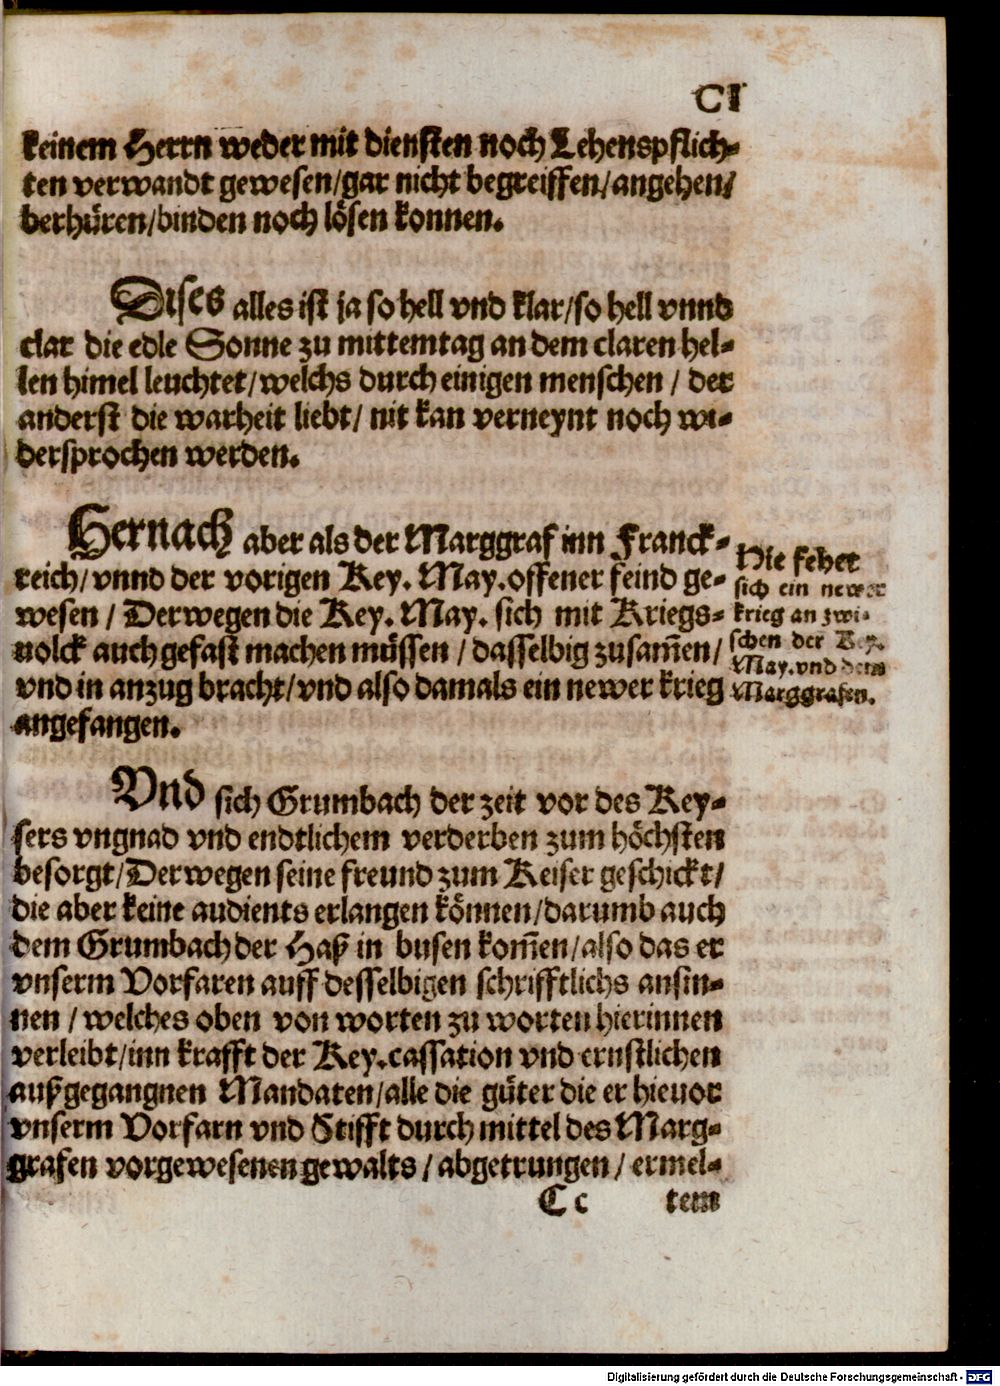 CI
keinem Herrn weder mit diensten noch Lehenspflich-
ten verwandt gewesen/gar nicht begreiffen/angehen/
berhüren/binden noch lösen konnen.
Dises alles ist ja so hell vnd klar/so hell vnnd
clar die edle Sonne zu mittemtag an dem claren hel-
len himel leuchtet/welchs durch einigen menschen / der
anderst die warheit liebt/ nit kan verneynt noch wi-
dersprochen werden.
Hernach aber als der Marggraf inn Franck-
reich/ vnnd der vorigen Key. May. offener feind ge-
wesen / Derwegen die Key. May. sich mit Kriegs-
uolck auch gefast machen müssen / dasselbig zusam̃en/
vnd in anzug bracht/vnd also damals ein newer krieg
angefangen.
Hie fehet
sich ein newer
krieg an zwi-
schen der Key.
May. vnd dem
Marggrafen.
Vnd sich Grumbach der zeit vor des Key-
sers vngnad vnd endtlichem verderben zum höchsten
besorgt/Derwegen seine freund zum Keiser geschickt/
die aber keine audients erlangen können/darumb auch
dem Grumbach der Haß in busen kom̃en/also das er
vnserm Vorfaren auff desselbigen schrifftlichs ansin-
nen / welches oben von worten zu worten hierinnen
verleibt/inn krafft der Key.cassation vnd ernstlichen
außgegangnen Mandaten/alle die güter die er hieuor
vnserm Vorfarn vnd Stifft durch mittel des Marg-
grafen vorgewesenen gewalts / abgetrungen / ermel-
Cc tem
Digitalisierung gefördert durch die Deutsche Forschungsgemeinschaft - DFG